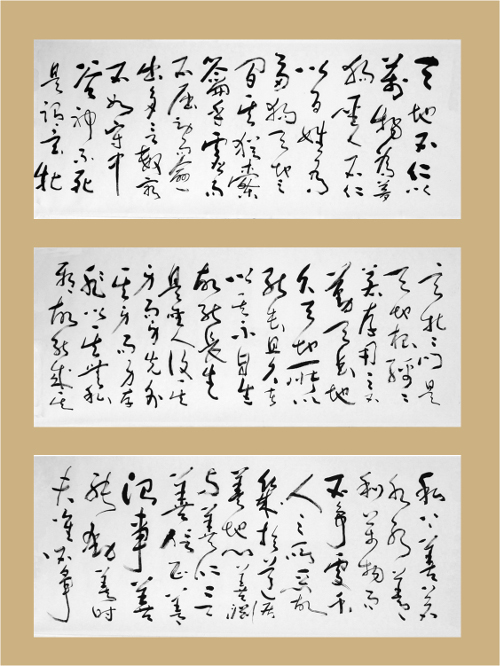 天地不仁以
萬物為芻
狗聖人不仁
以百姓為
芻狗天地之
間其猶橐
籥乎虛而
不屈動而愈
出多言數窮
不如守中
谷神不死
是謂玄牝
玄牝之門是
天地根綿綿
若存用之不
勤天長地
久天地所以
能長且久者
以其不自生
故能長生
是聖人後其
身而身先外
其身而身存
非以其無私
邪故能成其
私上善若
水水善
利萬物而
不爭處眾
人之所惡故
幾於道居
善地心善淵
與善仁言
善信正善
治事善
能動善時
夫唯不爭